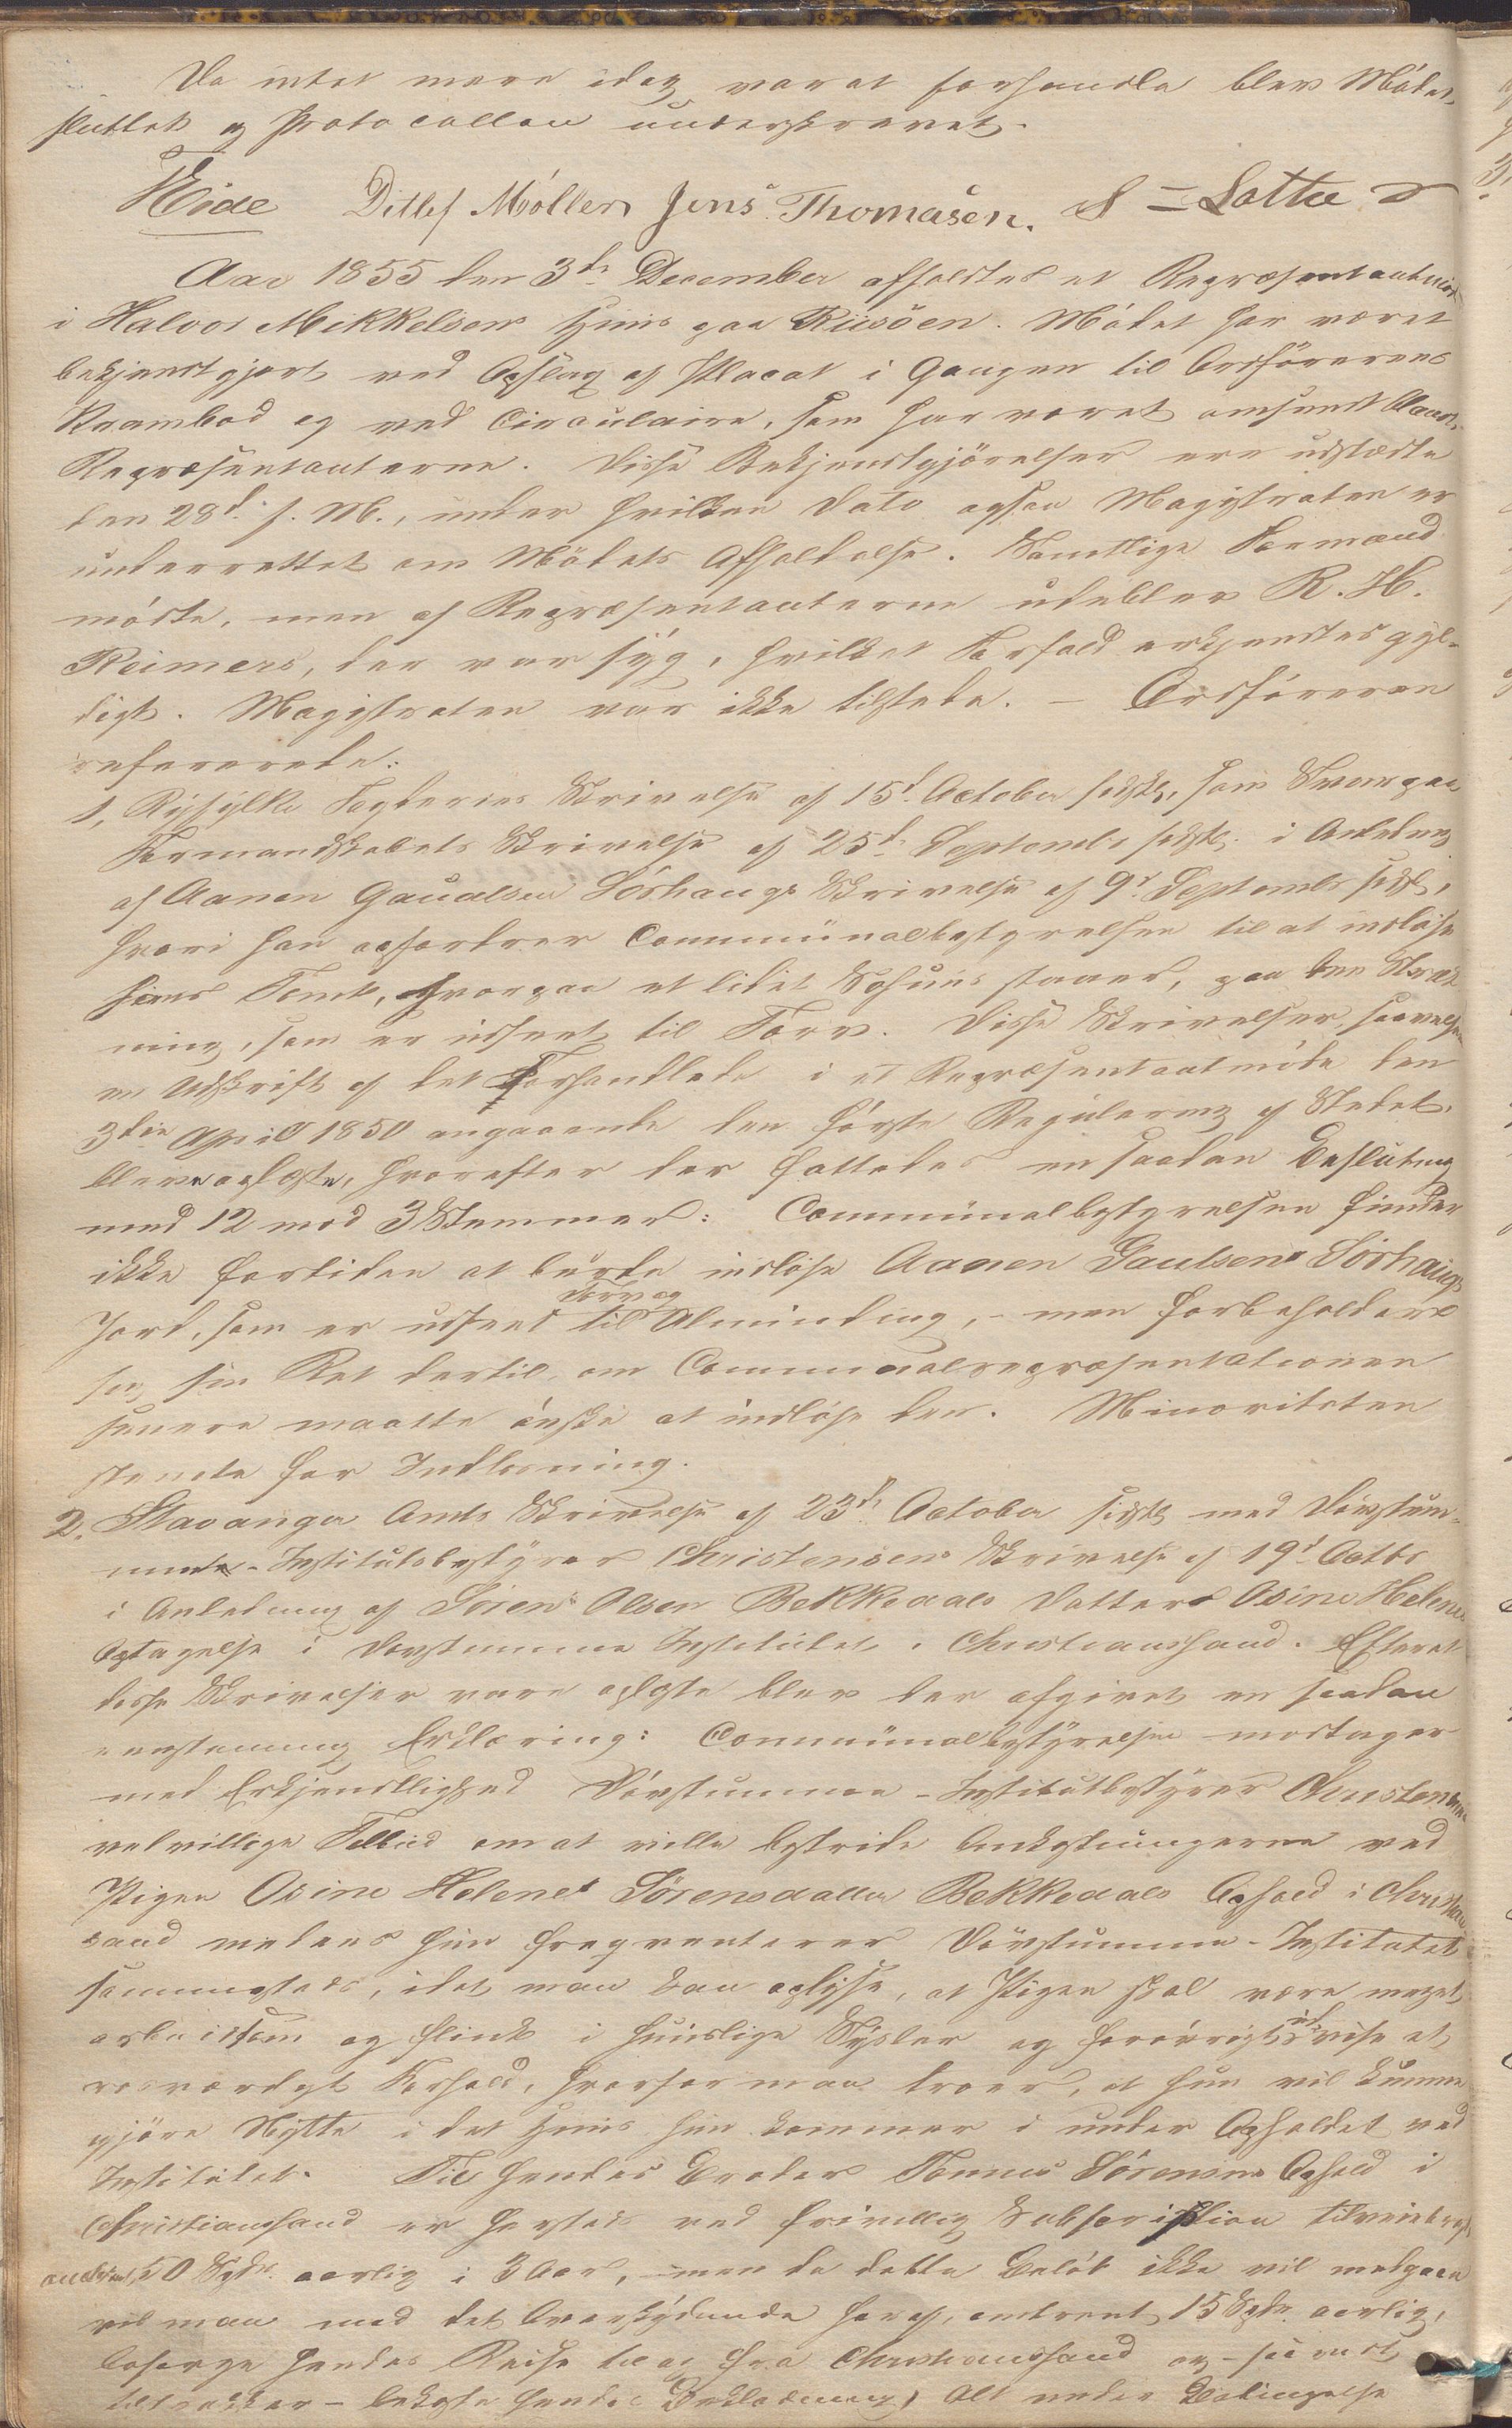 Da intet mere idag var at forhandle blev Mödet
sluttet og Protocollen underskrevet.
Eide Ditlef Möller Jens Thomasen. S = Lotte
Aar 1855 den 3de December afholdtes et Repræsentantmöde
i Halvor Mikkelsens Huus paa Riisöen. Mödet har været
bekjendtgjort ved Opslag af Placat i Gangen til Ordförerens
Krambod og ved Circulaire, som har været omsendt blandt
Repræsentanterne. Disse Bekjendtgjörelser ere udstædte
den 28de f. M., under hvilken Dato ogsaa Magistraten er
underrettet om Mödets Afholdelse. Samtlige Formænd
mödte, men af Repræsentanterne udeblev R. H.
Reimers, der var syg, hvilket Forfald erkjendtes gyl-
digt. Magistraten var ikke tilstede. – Ordföreren
refererede:
1, Ryfylke Fogderies Skrivelse af 15de October sidstl, som Svar paa
Formandskabets Skrivelse af 25de Septembr sidstl. i Anledning
af Aanen Gaudlsen Sörhaugs Skrivelse af 9de Septembr sidstl,
hvori han opfordrer Communalbestyrelsen til at indlöse
hans Tomt, hvorpaa et lidet Söhuus staaer, paa den Stræk
ning, som er udseet til Torv. Disse Skrivelser, saavelsom
en Udskrift af det Forhandlede i et Repræsentantmöde den
3die April 1850 angaaende den förste Regulering af Stedet,
bleve oplæste, hvorefter der fattedes en saadan Beslutning
med 12 mod 3 Stemmer: Communalbestyrelsen finder
ikke fortiden at burde indlöse Aanen Gaulsens Sörhaugs
Torv og
Jord, som er udseet til Alminding, – men forbeholder
sig sin Ret dertil, om Communalrepræsentationen
senere maatte önske at indlöse den. Minoriteten
stemte for Indlösning.
2. Stavanger Amts Skrivelse af 23de October sidstl med Dövstum-
me - Institutsbestyrer Christensens Skrivelse af 19de Octbr
i Anledning af Sören Olsen Bekkedals Datter Osine Helenes
Optagelse i Dövstumme Institutet i Christianssand. Efterat
disse Skrivelser vare oplæste blev der afgivet en saadan
eenstemmig Erklæring: Communalbestyrelsen modtager
med Erkjendtlighed Dövstumme - Institutbestyrer Christensens
velvillige Tilbud om at ville bestride Omkostningerne ved
Pigen Osine Helenes Sörensdatter Bekkedals Ophold i Christian
sand medens hun freqventerer Dövstumme - Institutet
sammesteds, idet man kan oplyse, at Pigen skal være meget
arbeidsom og flink i huuslige Sysler og foröovrigt udvise et
rosværdigt Forhold, hvorfor man troer, at hun vil kunne
gjöre Nytte i det Huus hun kommer i under Opholdet ved
Institutet. Til hendes Broder Tonnes Sörensens Ophold i
Christianssand er hersteds ved frivillig Subscription tilveiebragt
50 Spdr. aarlig i 3 Aar, – men da dette Belöb ikke vil medgaae
vil man med det Overskydende heraf, omtrent 15 Spdr. aarlig,
besörge hendes Reise til og fra Christianssand og – saavidt
tilrækker – bekoste hendes Beklædning, Alt under Betingelse